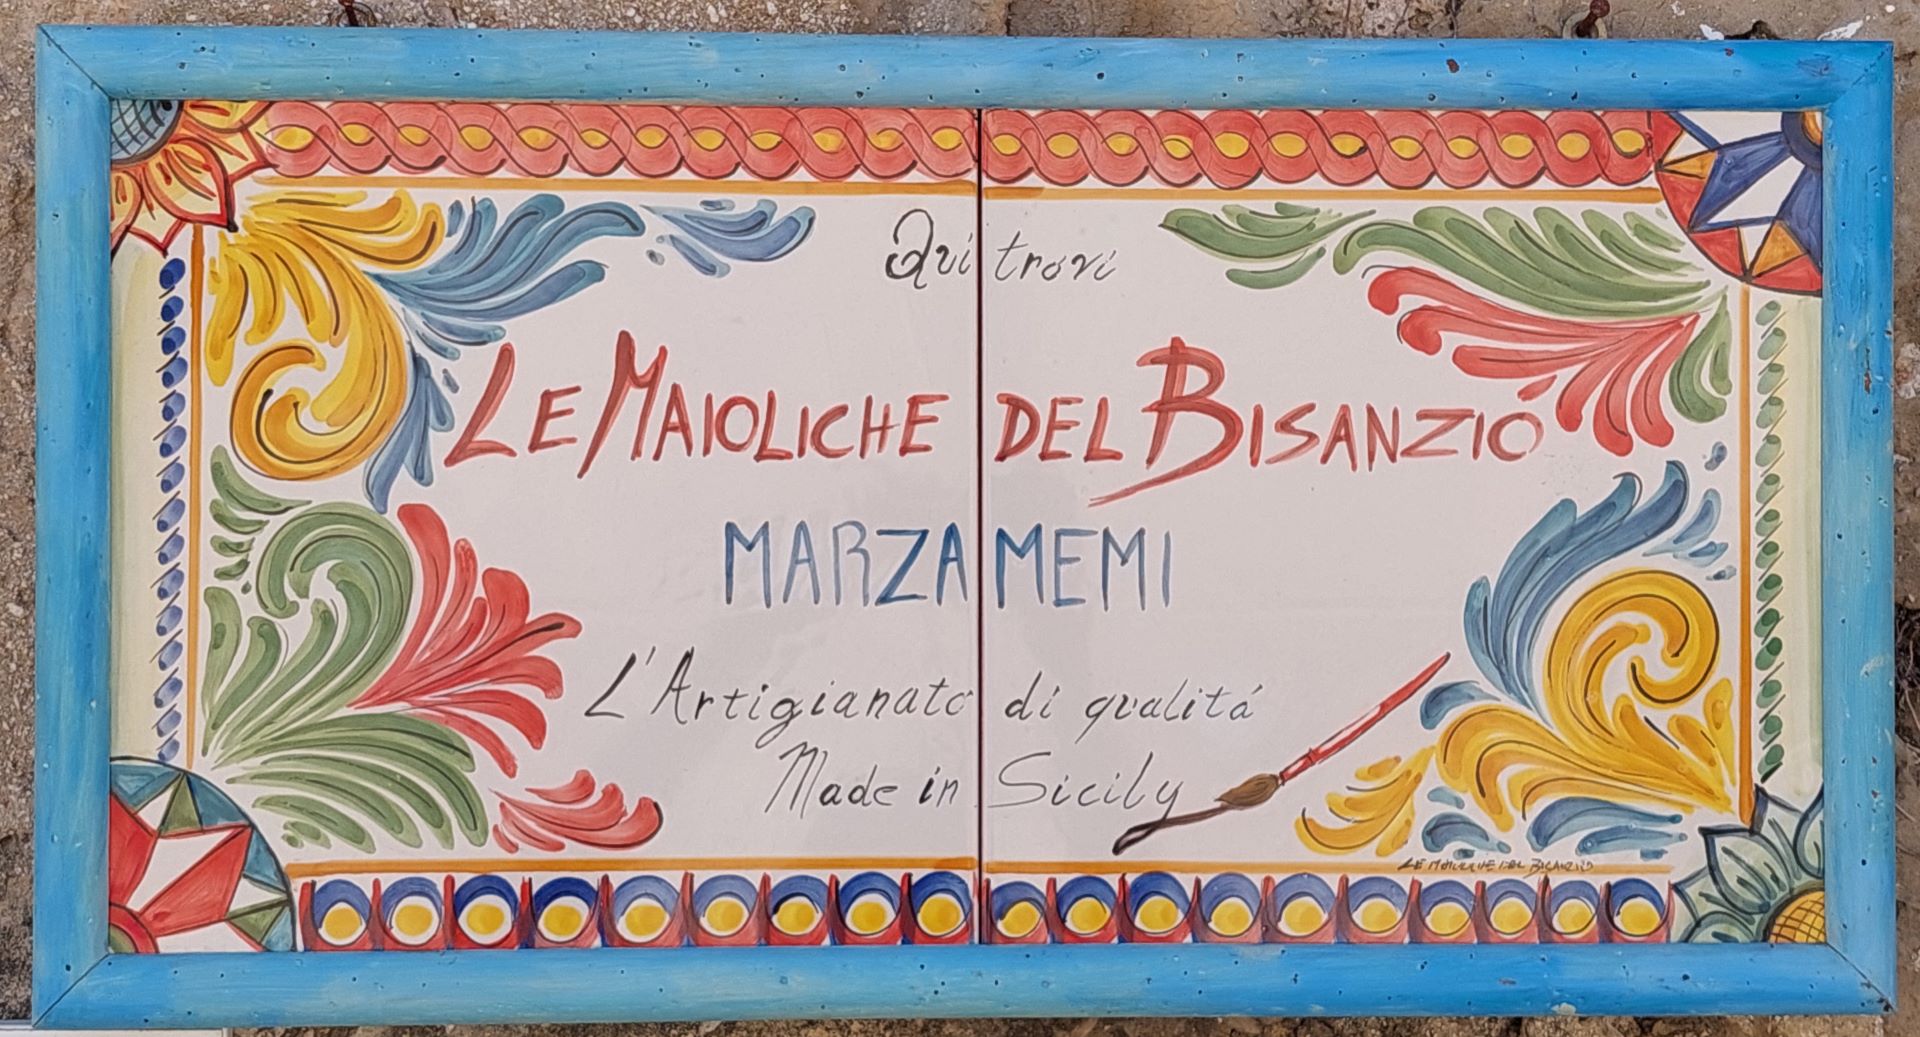 Qui trovi
LE MAIOLICHE DEL BISANZIO
MARZAMEMI
L'Artigianato di qualitá
Made in Sicily
LE MAIOLICHE DEL BISANZIO